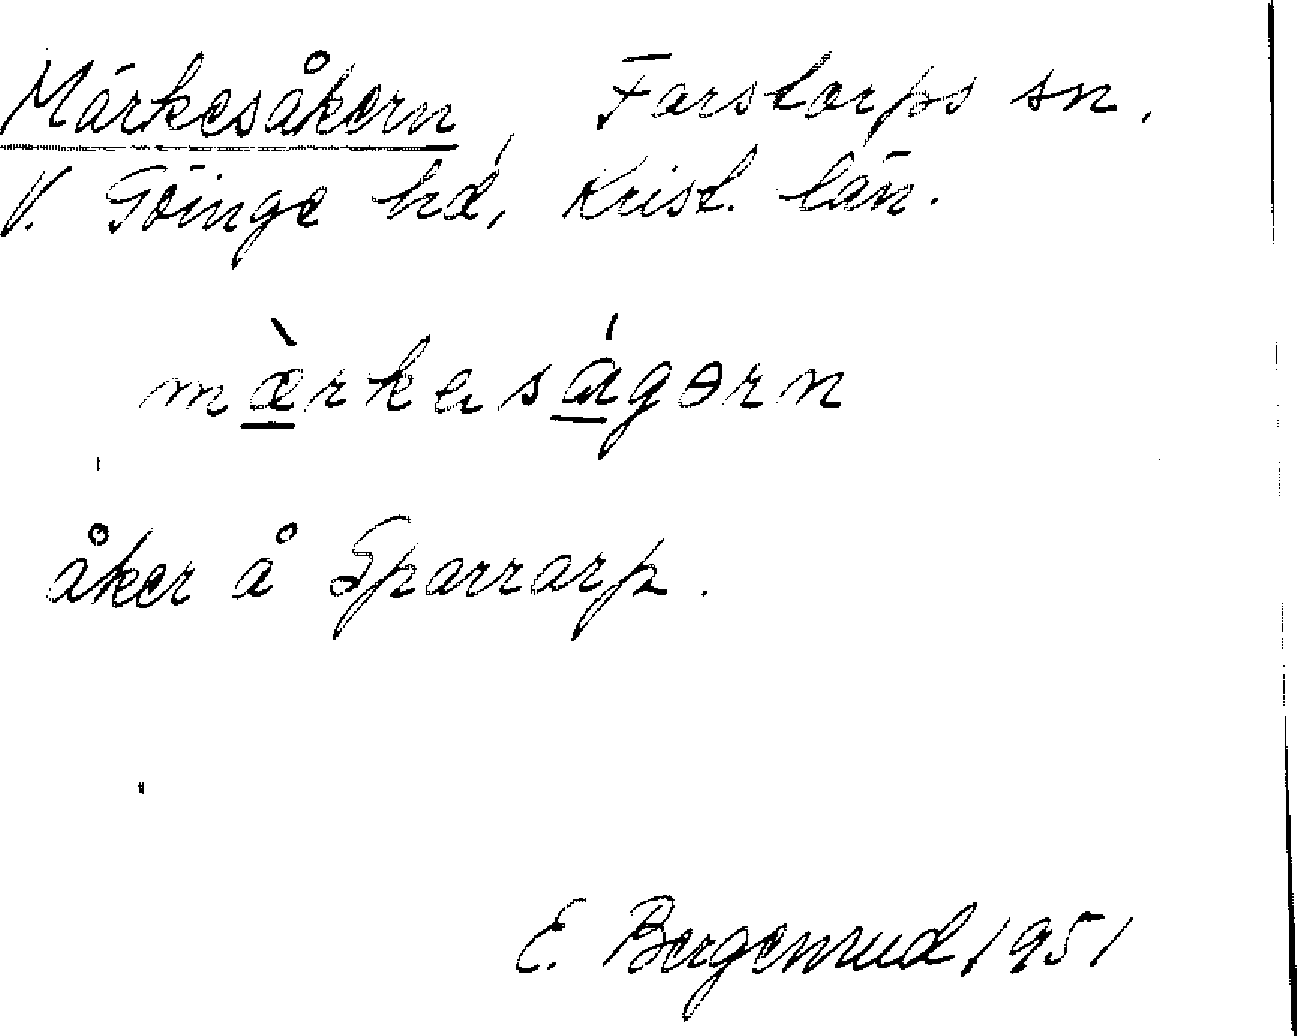 Märkesåkern, Farstorps sn.
V. Göinge hd, Krist. län.
mæ̀rkeságərn
åker å Sparrarp.
E. Bergenrud, 1951